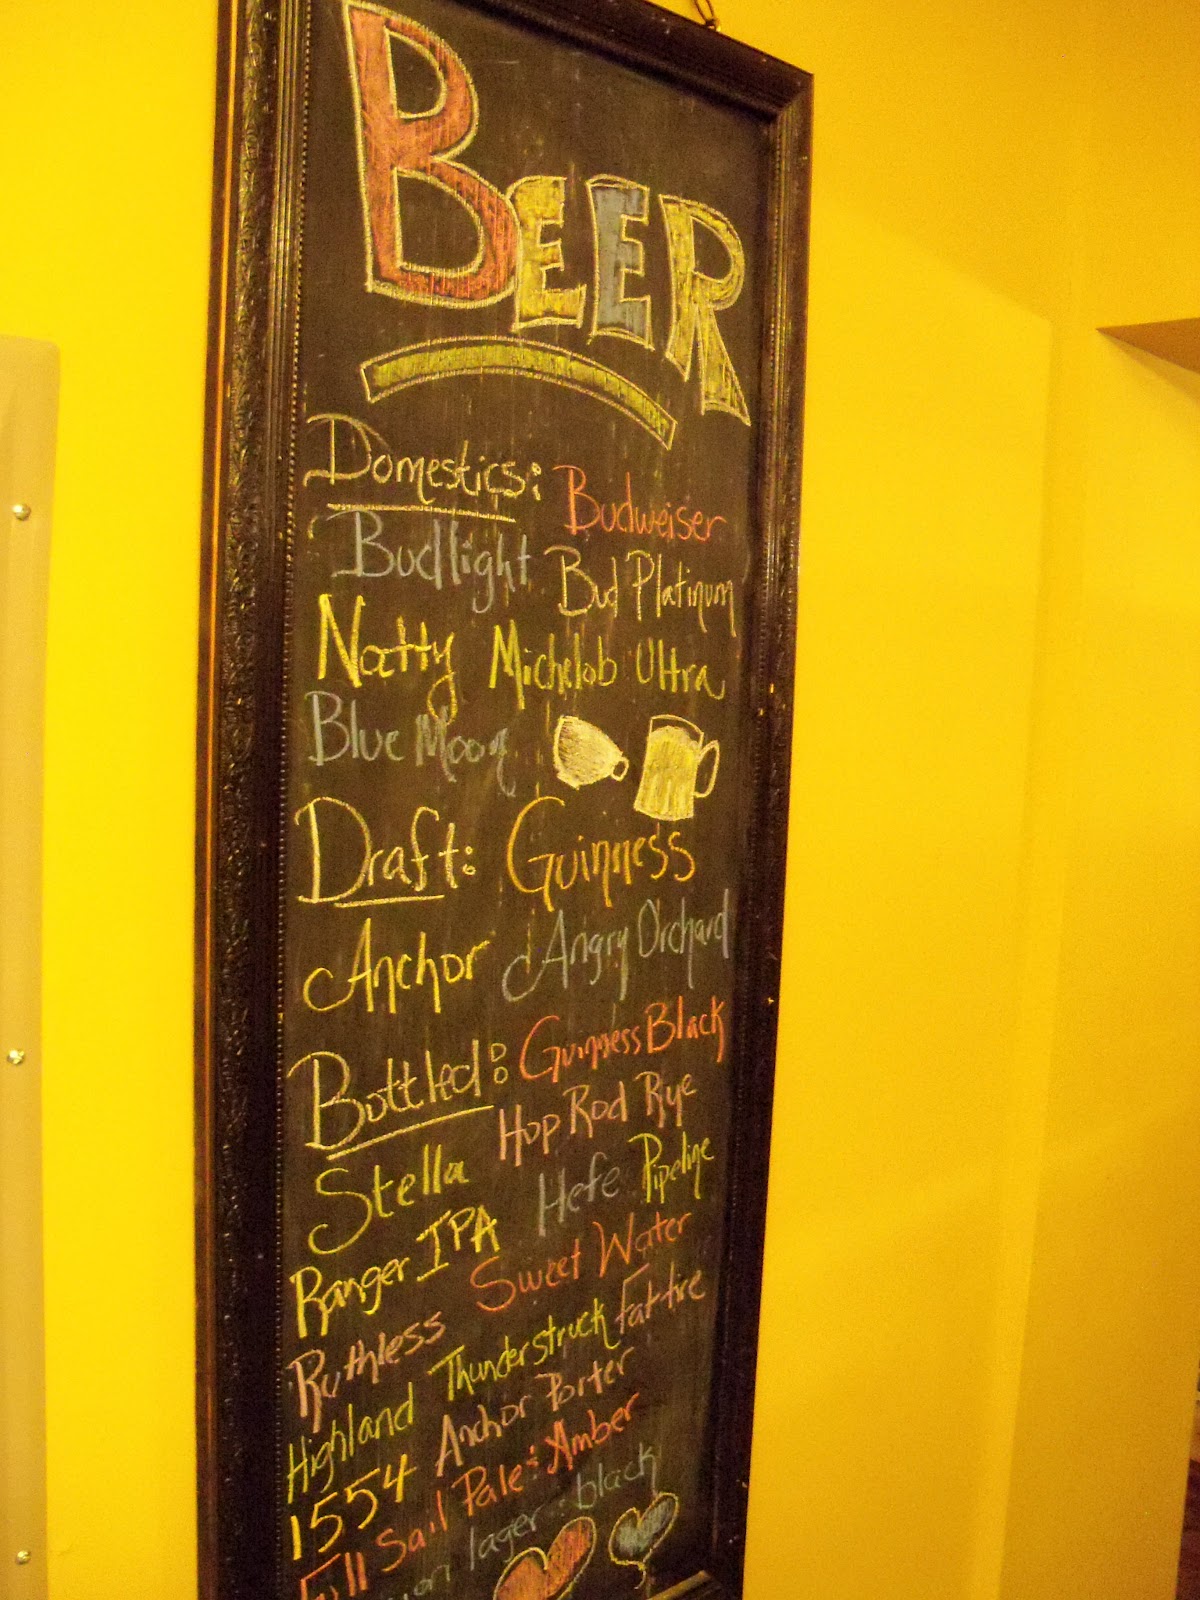 BEER
Domestics: Budweiser
Budlight Bud Platinum
Natty Michelob Ultra
Blue Moon
Draft: Guinness
Anchor Angry Orchard
Bottled: Guinness Black
Stella Hop Rod Rye
Ranger IPA Hefe Pipeline
Ruthless Sweet Water
Highland Thunderstruck Fat tire
1554 Anchor Porter
Full Sail Pale & Amber
lager & black